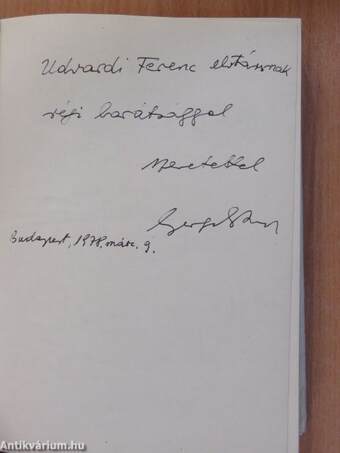 Udvardi Ferenc elvtársnak
régi barátsággal
szeretettel
Budapest, 1978. márc. 9.
Antikvárium.hu